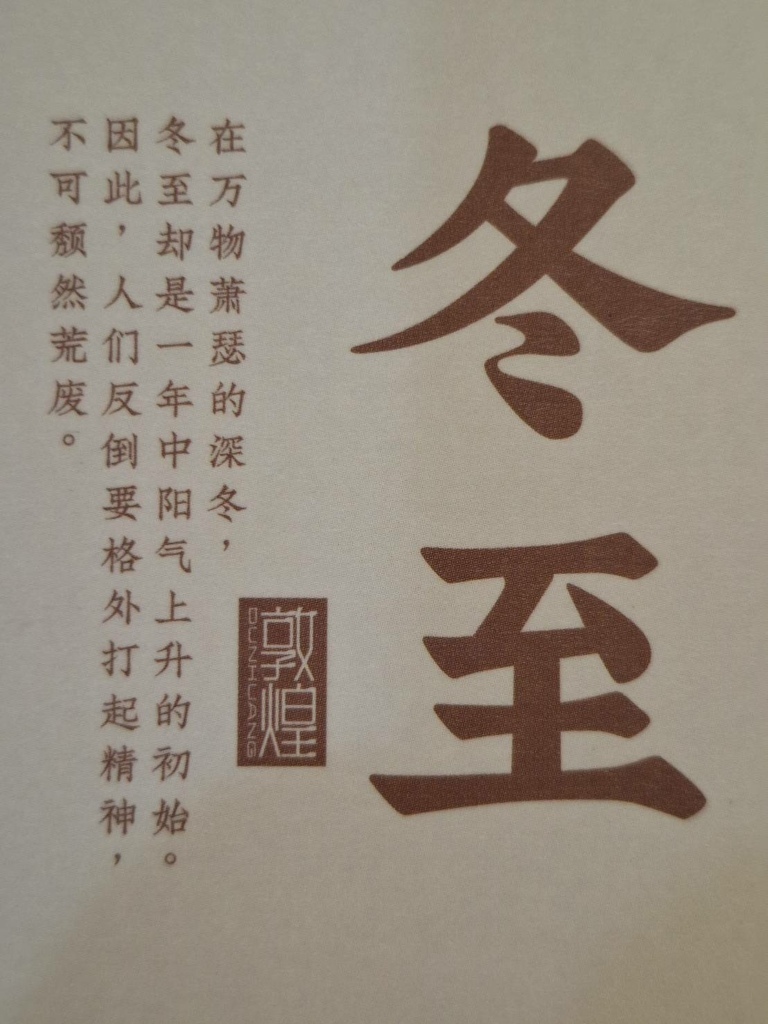 冬至
在万物萧瑟的深冬，
冬至却是一年中阳气上升的初始。
因此，人们反倒要格外打起精神，
不可颓然荒废。
敦煌